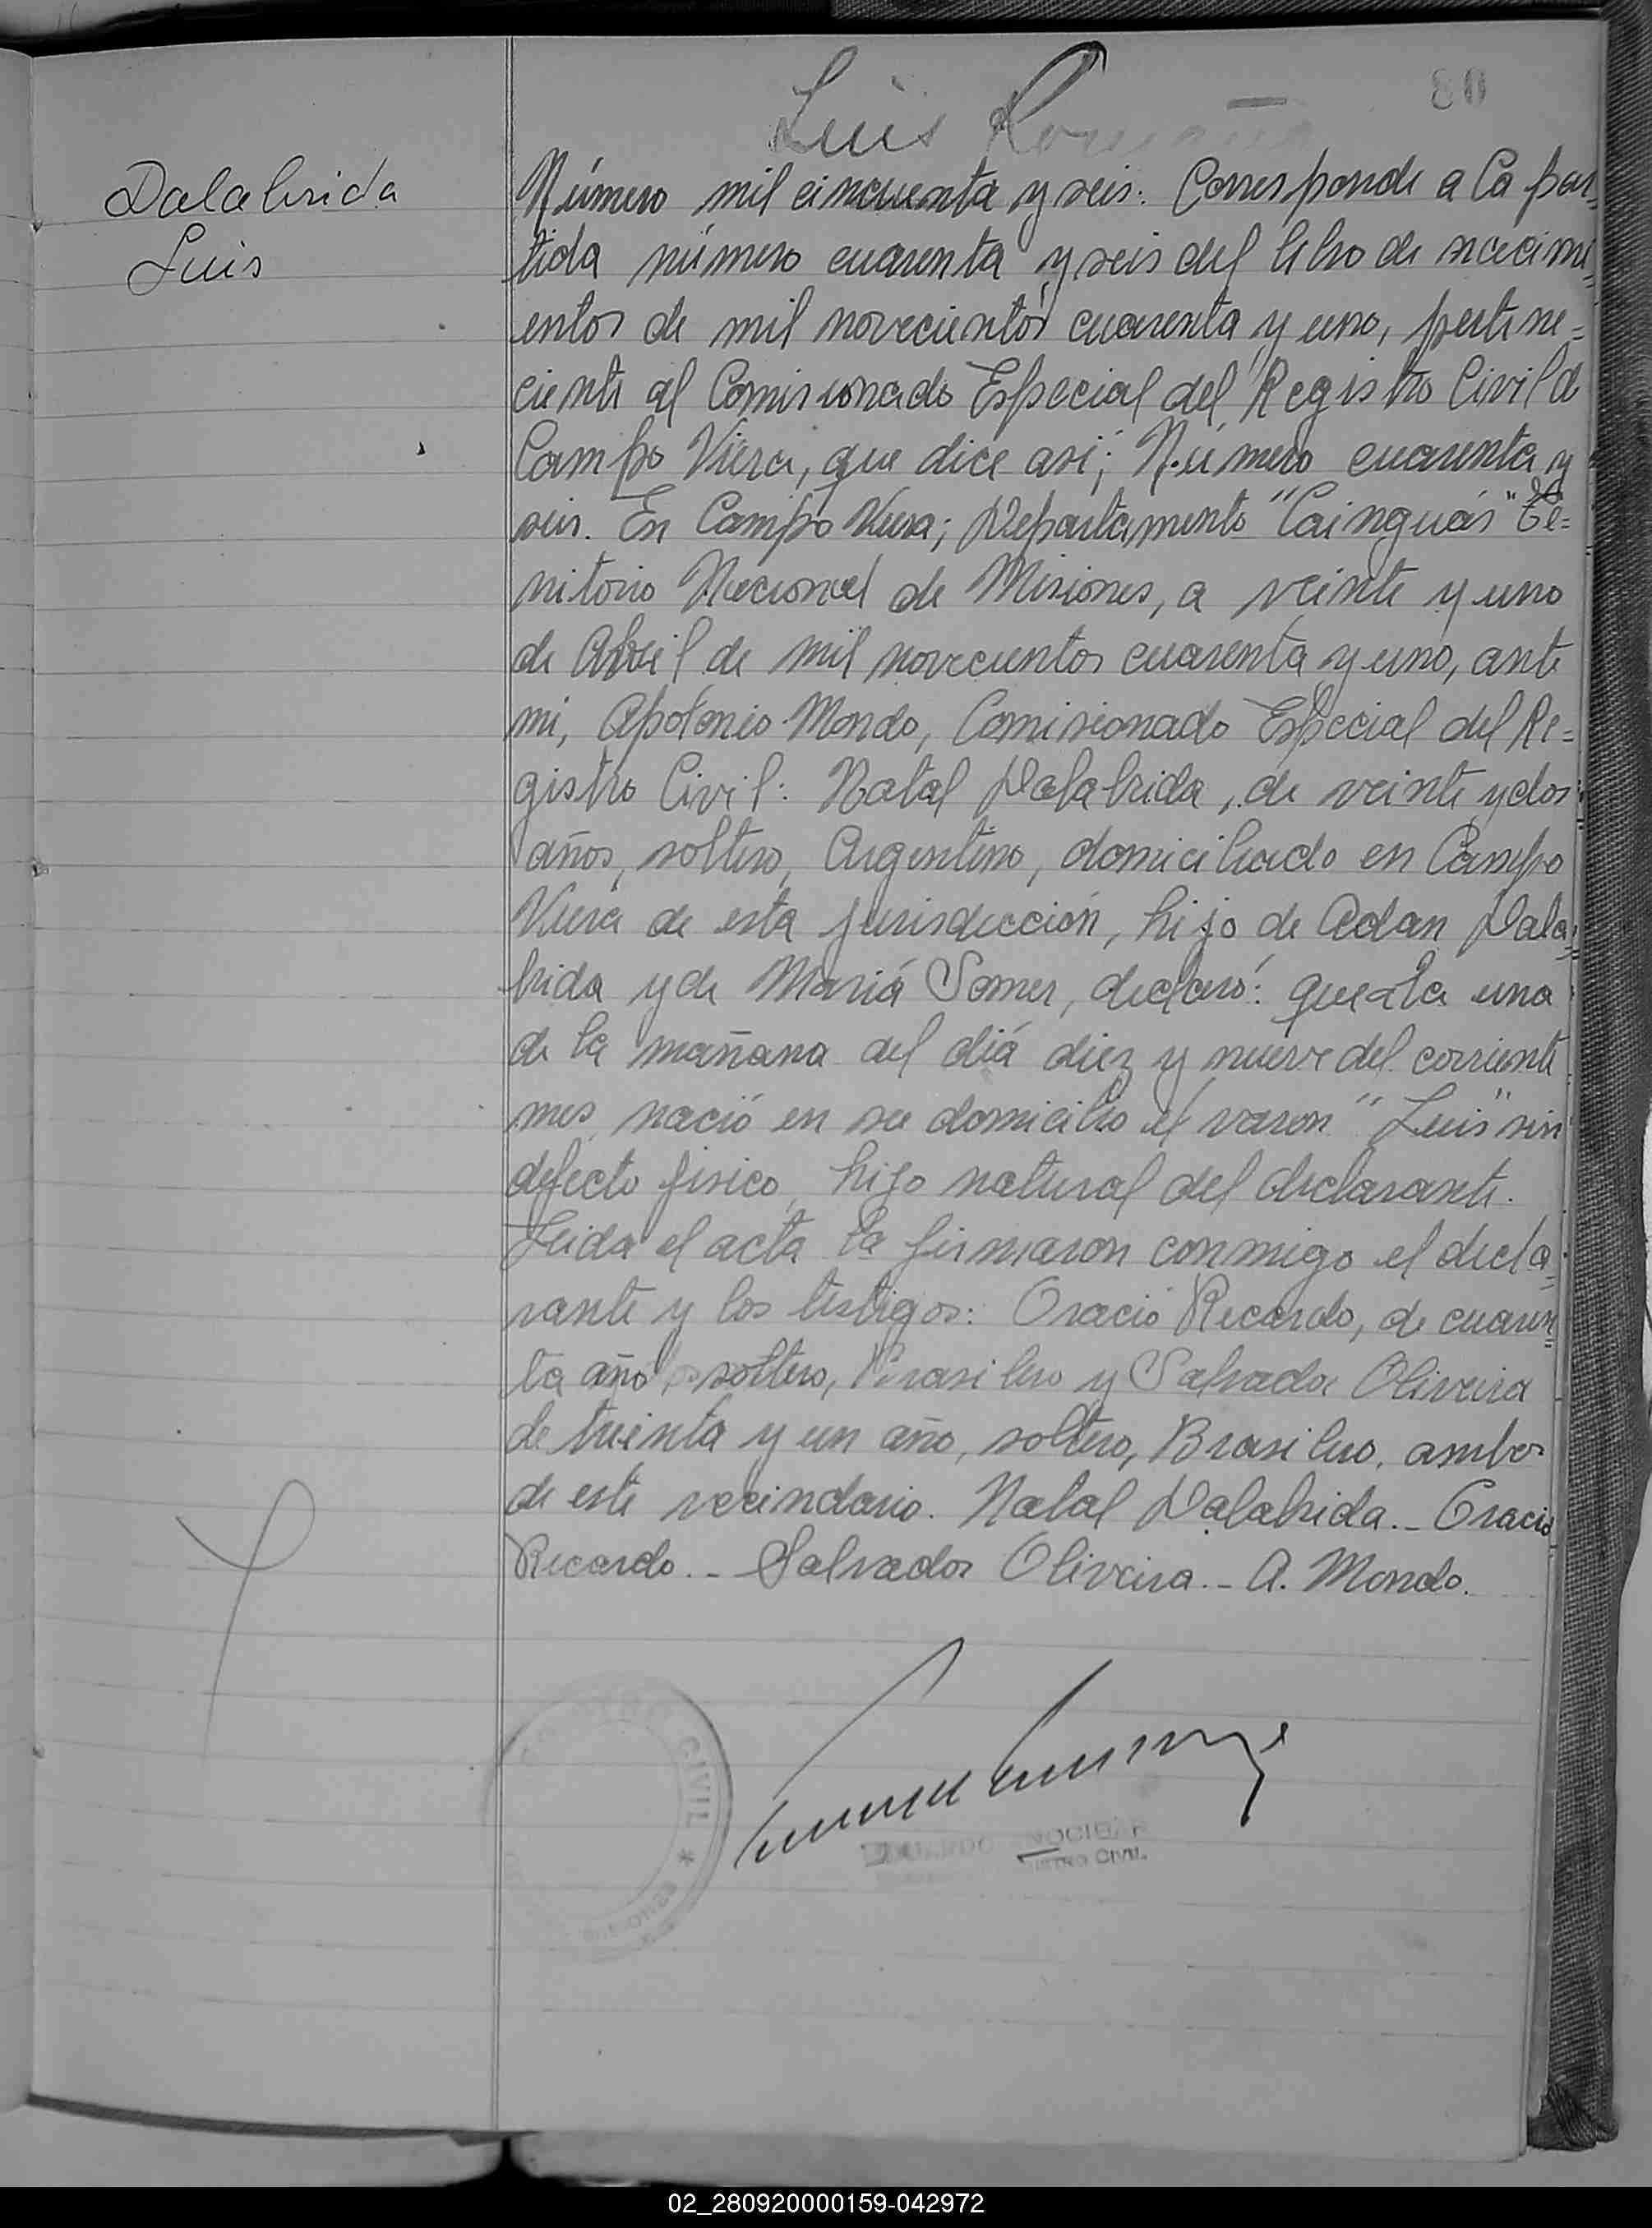 Luis
80
Dalabrida
Luis
Número mil cincuenta y seis: Corresponde a la par=
tida número cuarenta y seis del libro de nacimi=
entos de mil novecientos cuarenta y uno, pertene=
ciente al Comisionado Especial del Registro Civil d
Campo Viera, que dice asi; Número cuarenta y
seis. En Campo Viera; Departamento "Cainguás" Te=
rritorio Nacional de Misiones, a veinte y uno
de Abril de mil novecientos cuarenta y uno, ante
mi, Apotonio Mondo, Comisionado Especial del Re=
gistro Civil: Natal Dalabrida, de veinte y dos
años, soltero, Argentino, domiciliado en Campo
Viera de esta jurisdicción, hijo de Adan Dala=
brida y de Mariá Somer, declaró: que a la una
de la mañana del diá diez y nueve del corriente
mes nació en su domicilio el varon "Luis" sin
defecto fisico, hijo natural del declarante.
Leida el acta la firmaron conmigo el decla=
rante y los testigos: Oracio Ricardo, de cuaren=
ta año soltero, Brasilero y Salvador Oliveira
de treinta y un año, soltero, Brasilero, ambos
de este vecindario. Natal Dalabrida._ Oracio
Ricardo._ Salvador Oliveira._ A. Mondo.
CIVIL *
MISIONES
REGISTRO CIVIL
02_280920000159-042972